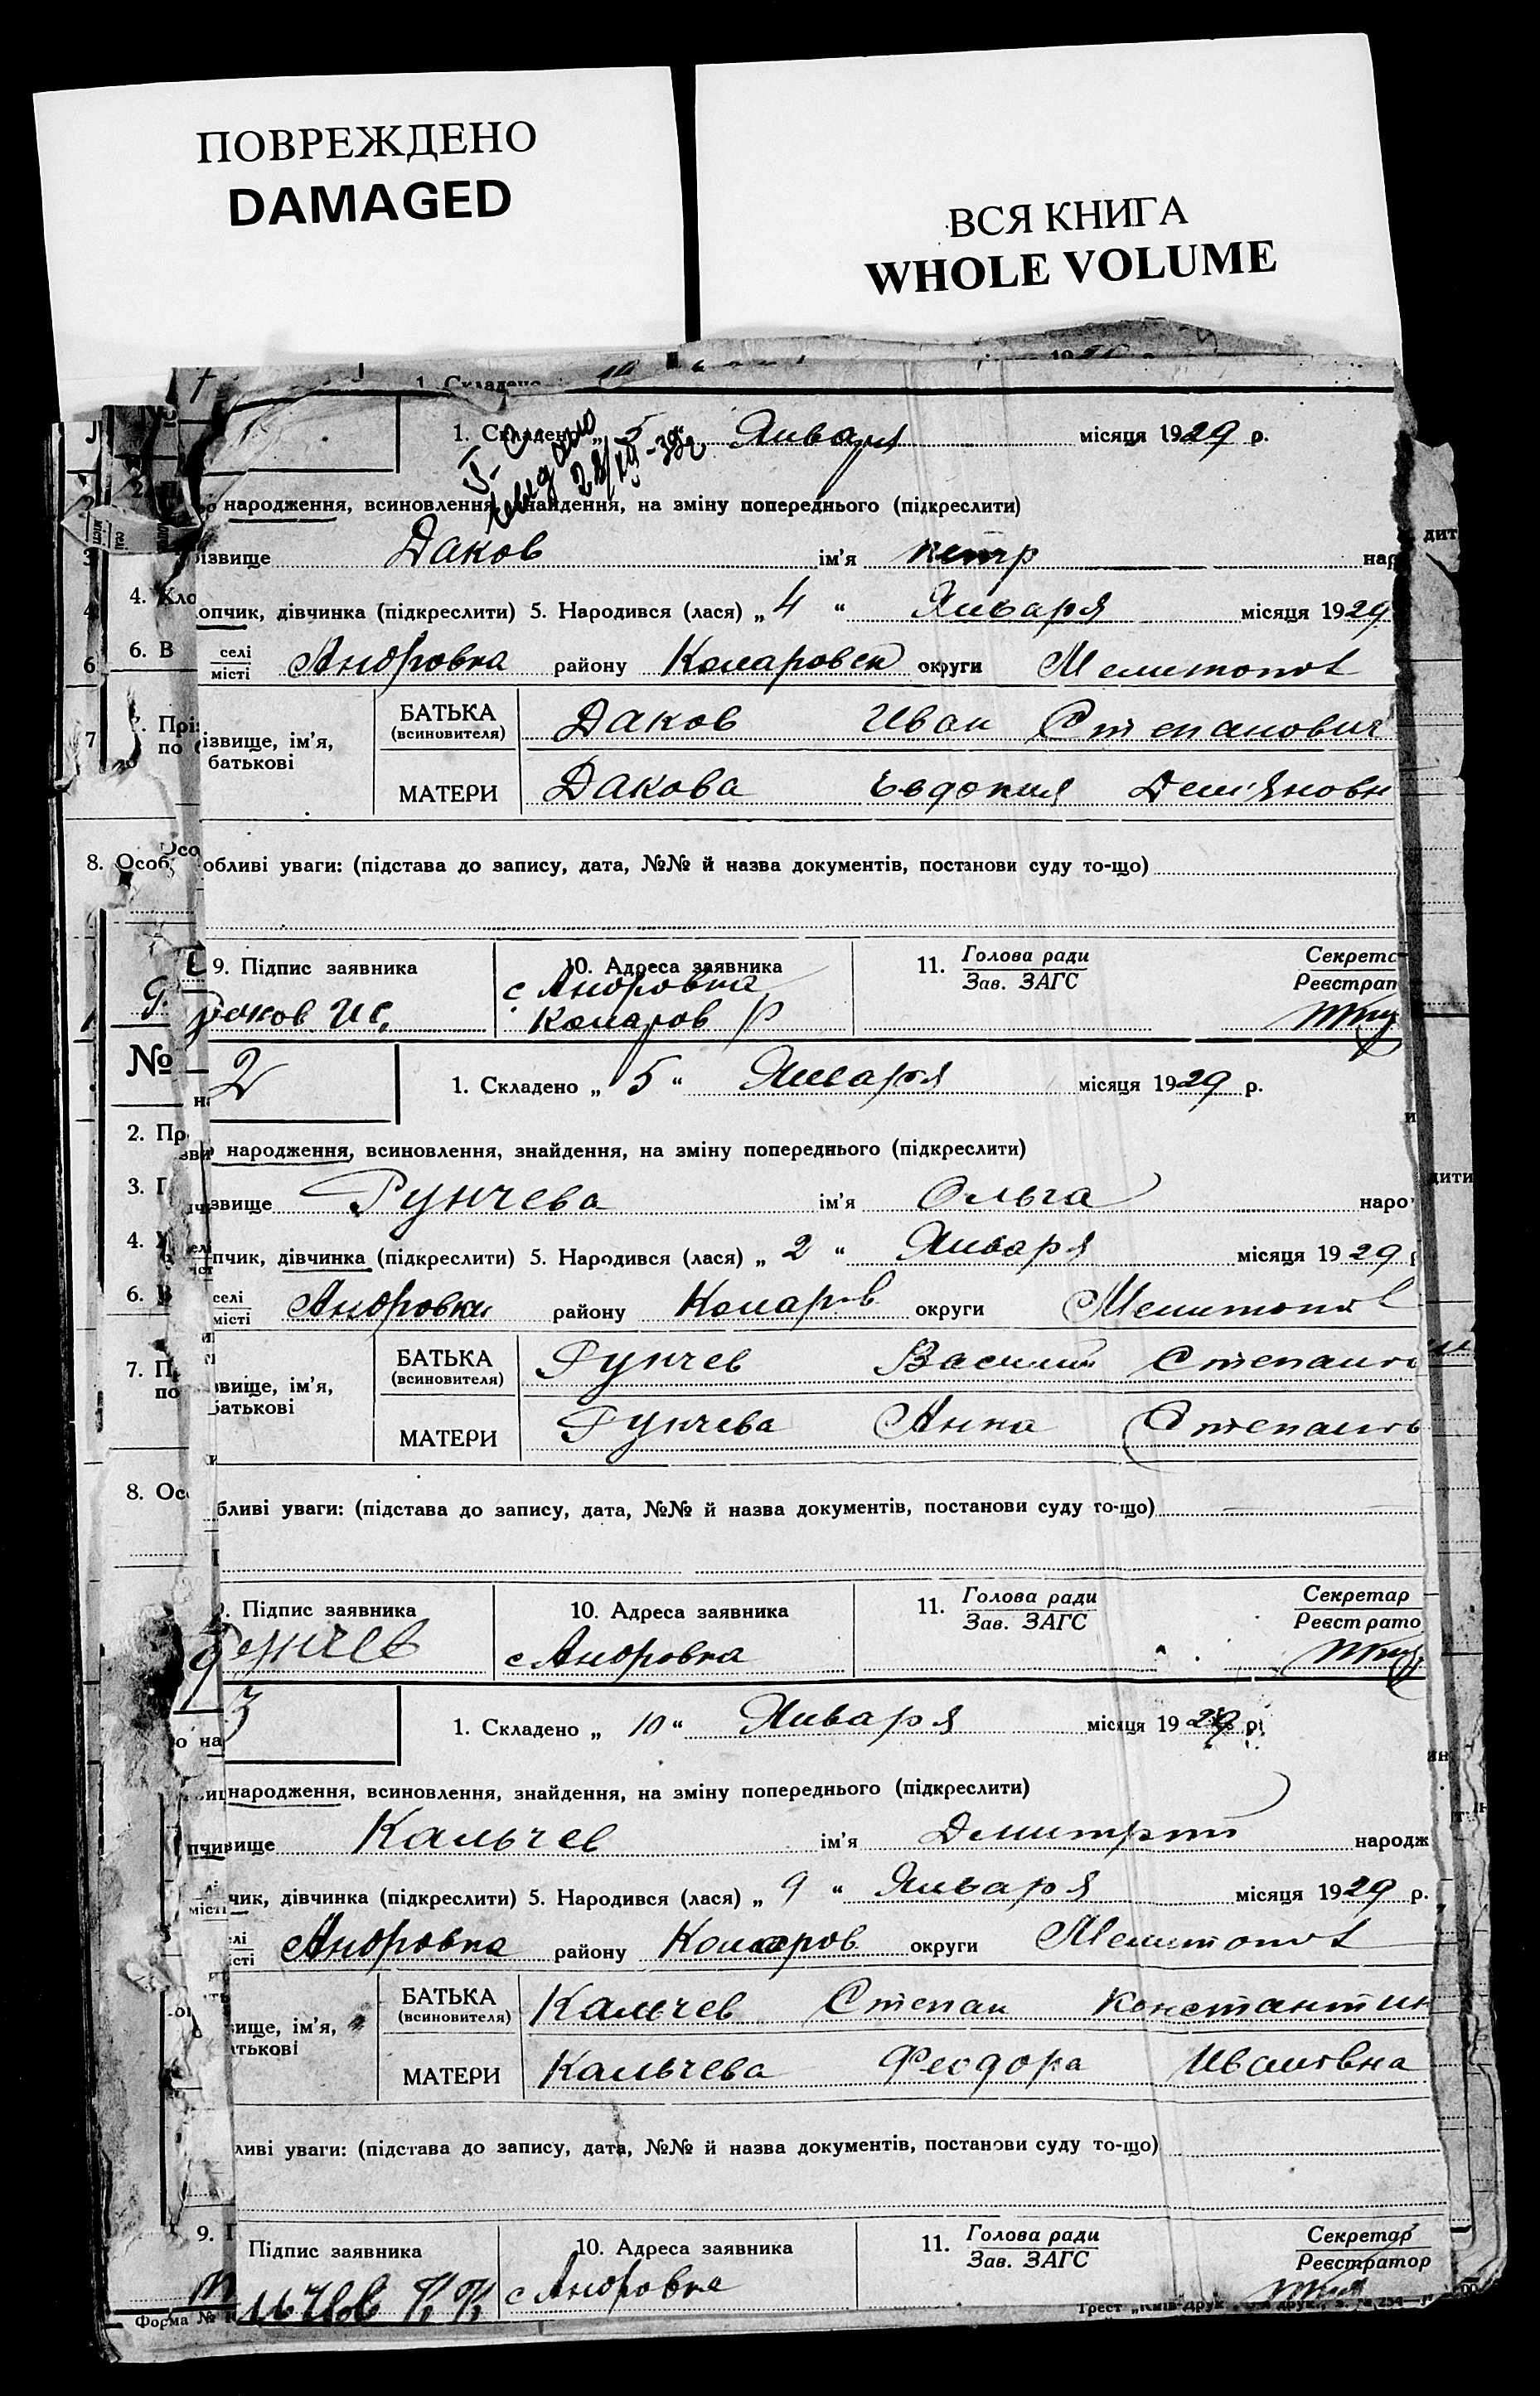 ПОВРЕЖДЕНО
DAMAGED
ВСЯ КНИГА
WHOLE VOLUME
1. Складено „ 5 “ Января місяця 1929 р.
28/III-39г
народження, всиновлення, знайдення, на зміну попереднього (підкреслити)
різвище Даков ім'я Петр нар
4. Хлопчик, дівчинка (підкреслити) 5. Народився (лася) „ 4 “ Января місяця 1929
6. В селі місті Андровка району Комаровск округи Мелитопол
7. Прізвище, ім'я, по батькові
БАТЬКА (всиновителя) Даков Иван Степанович
МАТЕРИ Дакова Евдокия Дем'яновн
8. Особливі уваги: (підстава до запису, дата, №№ й назва документів, постанови суду то-що)
9. Підпис заявника 10. Адреса заявника 11. Голова ради Секрета
Зав. ЗАГС Реєстрат
с Андровка
Даков И С, Комаров р
№ 2 1. Складено „ 5 “ Января місяця 1929 р.
2. Про народження, всиновлення, знайдення, на зміну попереднього (підкреслити)
3. Прізвище Рунчева ім'я Ольга наро
4. Хлопчик, дівчинка (підкреслити) 5. Народився (лася) „ 2 “ Января місяця 1929 р
6. В селі місті Андровки району Комаров округи Мелитопол
7. Прізвище, ім'я, по батькові
БАТЬКА (всиновителя) Рунчев Василий Степанов
МАТЕРИ Рунчева Анна Степанов
8. Особливі уваги: (підстава до запису, дата, №№ й назва документів, постанови суду то-що)
9. Підпис заявника 10. Адреса заявника 11. Голова ради Секретар
Зав. ЗАГС Реєстрато
Рунчев с Андровка
3 1. Складено „ 10 “ Января місяця 1929 р.
народження, всиновлення, знайдення, на зміну попереднього (підкреслити)
вище Кальчев ім'я Дмитрий народж
чик, дівчинка (підкреслити) 5. Народився (лася) „ 9 “ Января місяця 1929 р.
селі місті Андровка району Комаров округи Мелитопол
вище, ім'я, батькові
БАТЬКА (всиновителя) Кальчев Степан Константин
МАТЕРИ Кальчева Феодора Ивановна
ливі уваги: (підстава до запису, дата, №№ й назва документів, постанови суду то-що)
9. Підпис заявника 10. Адреса заявника 11. Голова ради Секретар
Зав. ЗАГС Реєстратор
льчов К К с Андровка
Форма №